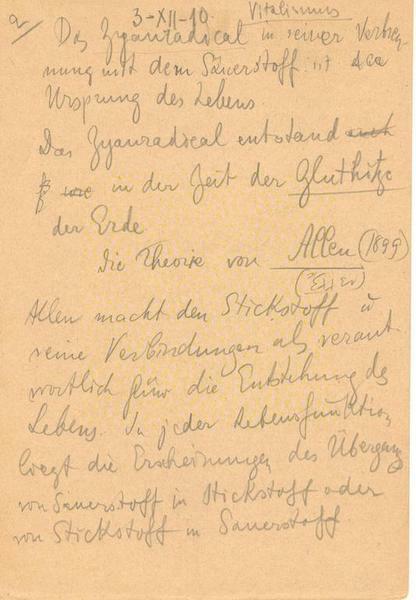 2/ 3-XII-10. Vitalismus
Das Zyanradical in seiner Verbren
nung mit dem Sauerstoff ist das
Ursprung des Lebens
Das Zyanradical entstand
in der Zeit der Gluthitze
der Erde
die Theorie von Allen (1899)
Allen macht den Stickstoff u
seine Verbindungen als verant
wortlich für die Entstehung des
Lebens. In jeder Lebensfunktion
liegt die Erscheinungen des Übergang
von Sauerstoff in Stickstoff oder
von Stickstoff in Sauerstoff